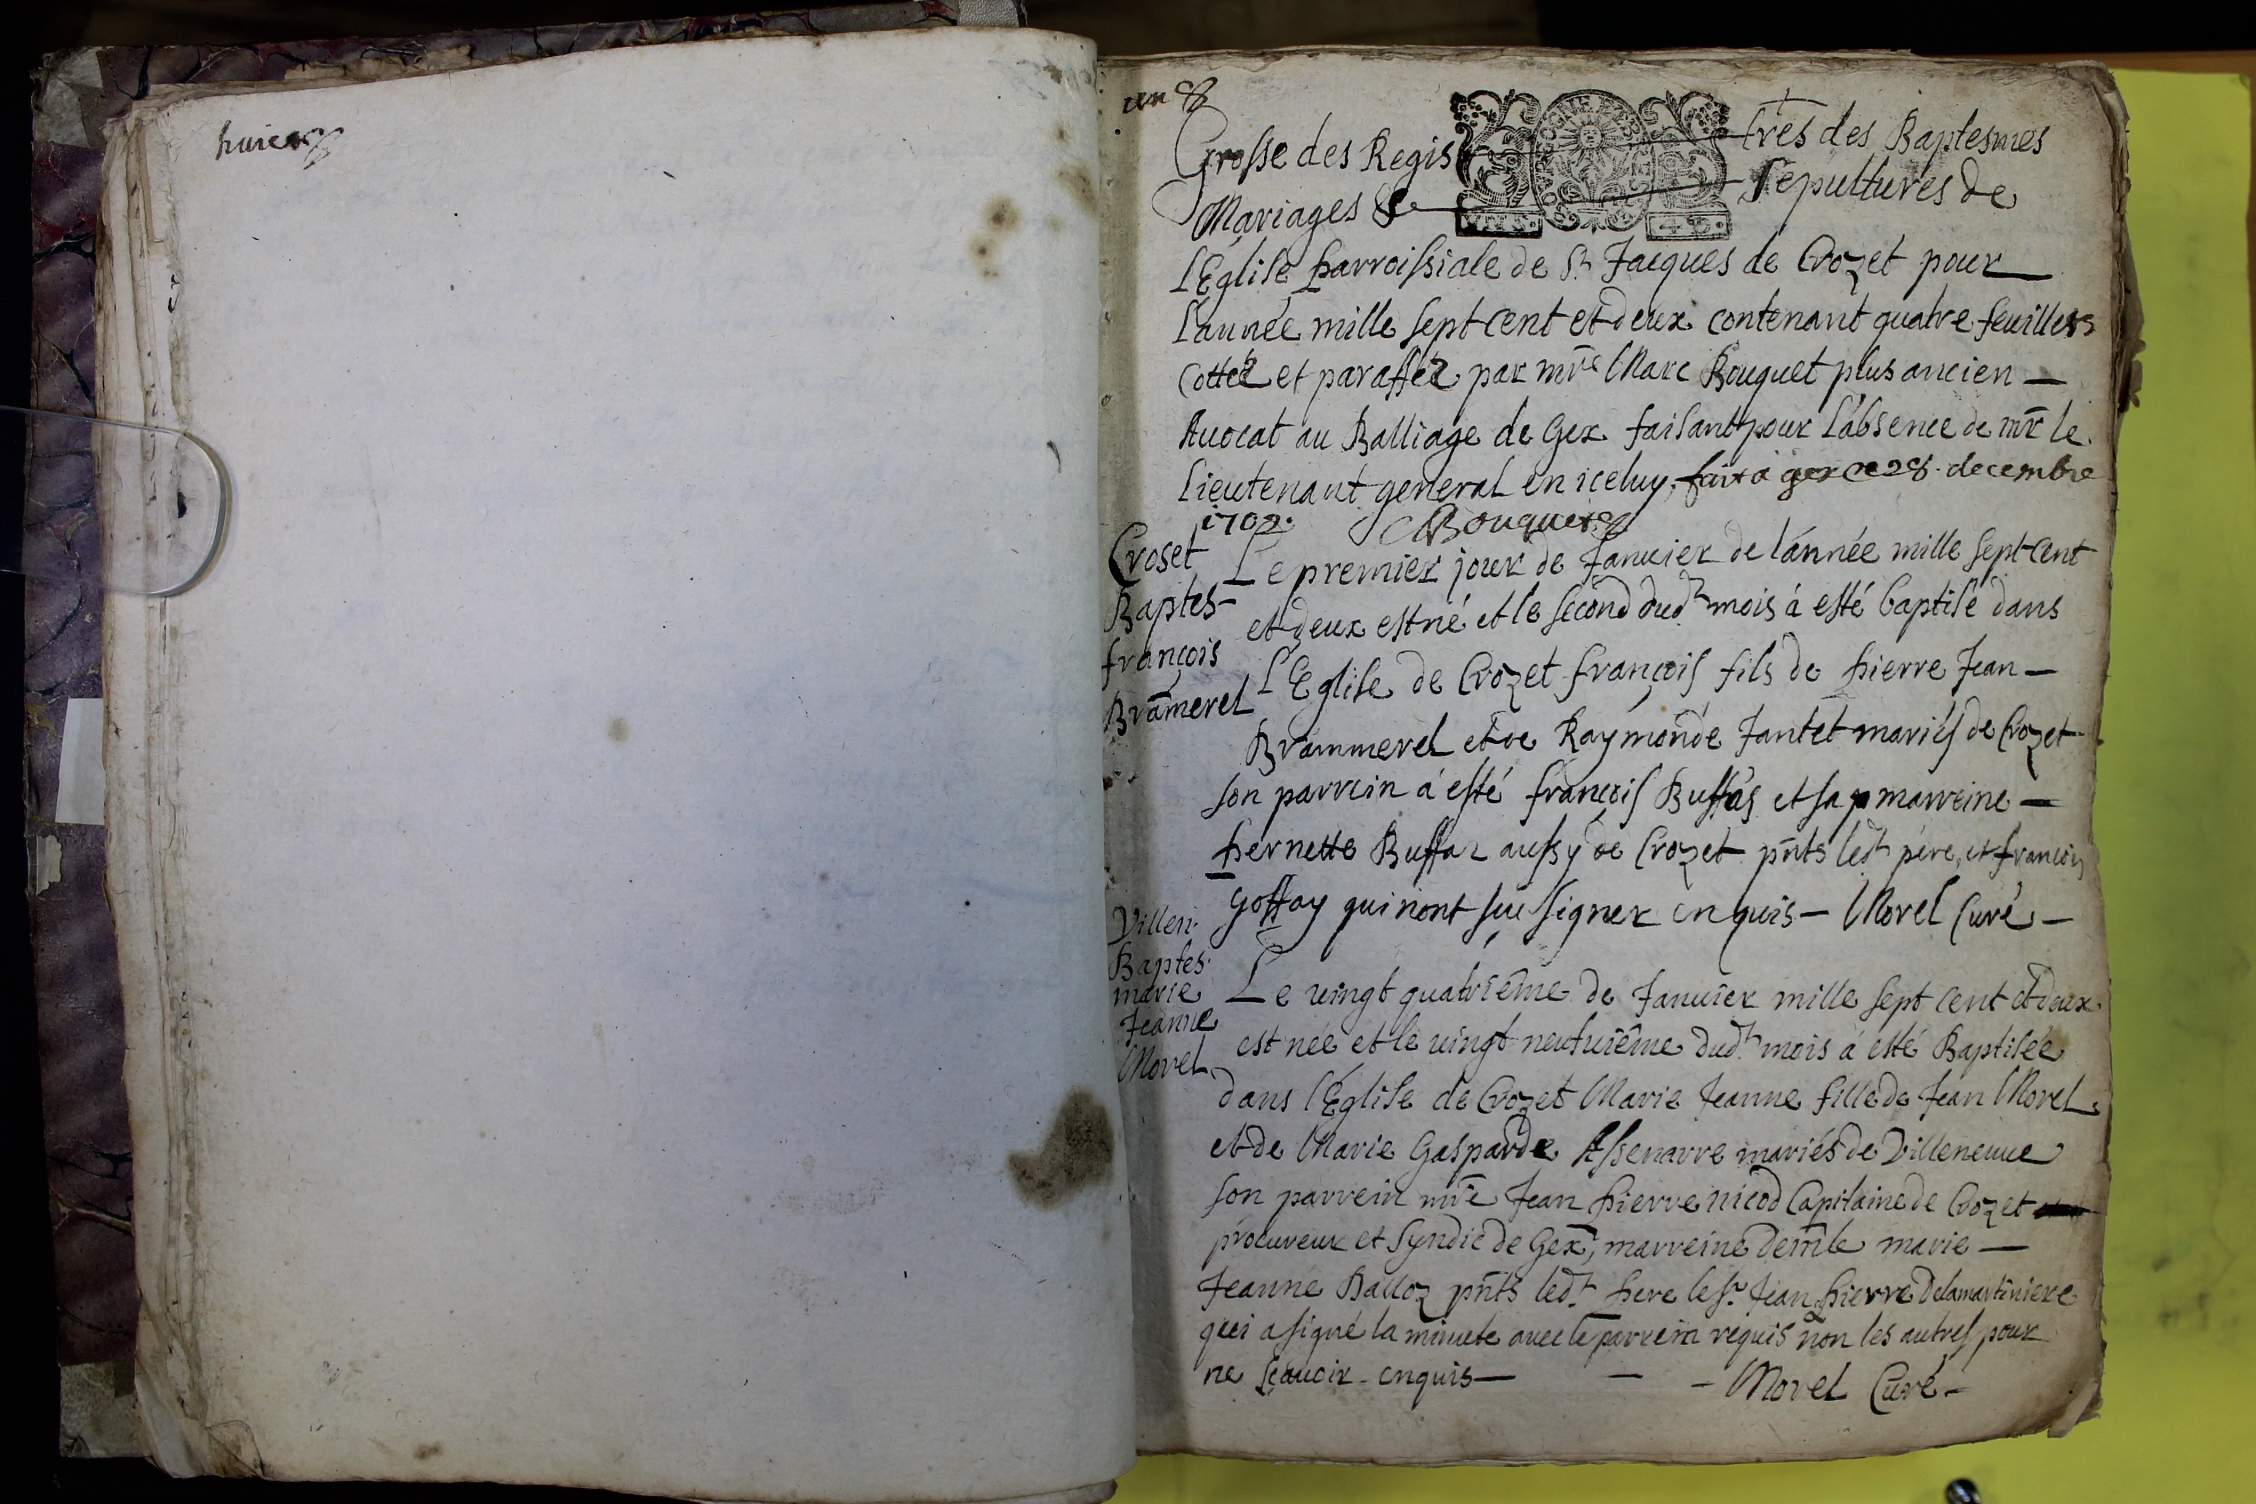 huict
un
Grosse des Regis tres des Baptesmes
Mariages & Sepultures de
L'Eglise Parroissiale de St. Jacques de Crozet pour
L'année mille sept cent et deux contenant quatre feuillets
Cottéz et paraffez par mre Marc Bouquet plus ancien
Avocat au Balliage de Gex faisant pour L'absence de mr le
Lieutenant general en iceluy, fait a gex ce 28. decembre
1702. Bouquet
Croset
Baptes-
françois
Bramerel
Le premier jour de Janvier de l'année mille sept cent
et deux est né et le second dudt mois á esté baptisé dans
L'Eglise de Crozet françois fils de Pierre Jean
Brammerel et de Raymonde Jantet mariés de Crozet
son parrein á esté françois Buffas et sa marreine
Pernette Buffaz aussy de Crozet pnts ledt pére, et françois
Goffay qui n'ont sçu signer enquis - Morel Curé
Villen.
Baptes.
marie
Jeanne
Morel
Le vingt quatriême de Janvier mille sept cent et deux
est née et le vingt neufuiême dudt mois á esté Baptisée
dans l'Eglise de Crozet Marie Jeanne fille de Jean Morel
et de Marie Gasparde Assenarre mariés de Villeneuve
son parrein mre Jean Pierre nicod Capitaine de Crozet
procureur et Syndic de Gex, marreine demle marie
Jeanne Balloz pnts ledt Pere le sr. Jean Pierre Delamartiniere
qui a signé la minute avec le parrein requis non les autres pour
ne sçavoir enquis - - - Morel Curé